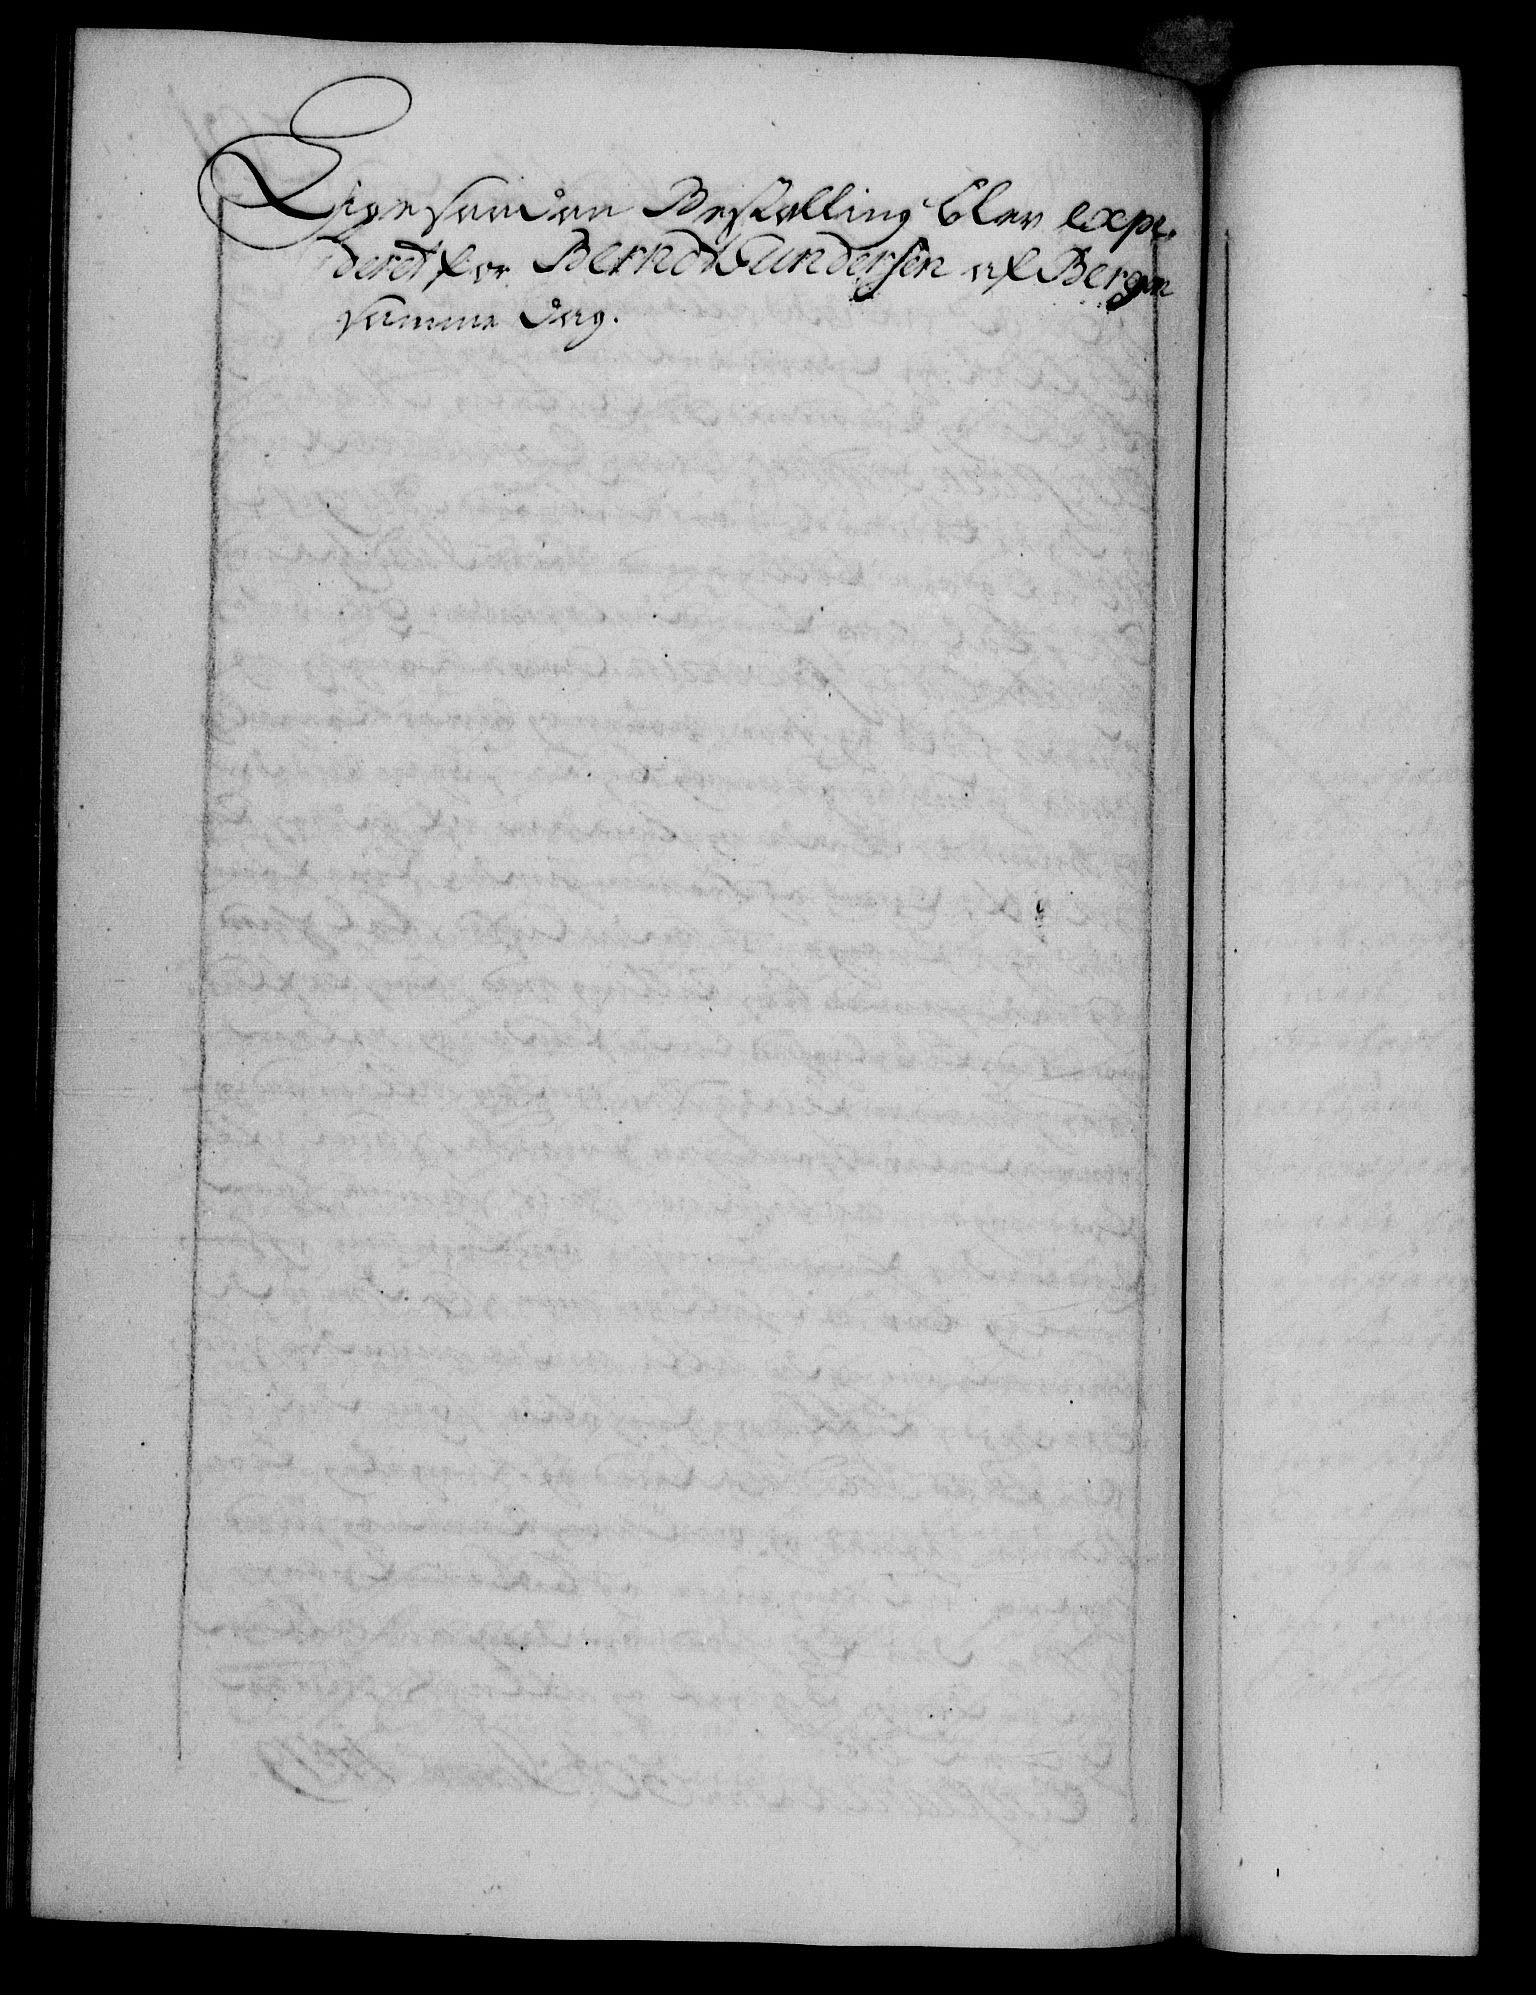 Ligesaadan Bestalling blev expe-
deret for Berndt Gundersen af Bergen
samme Dag.